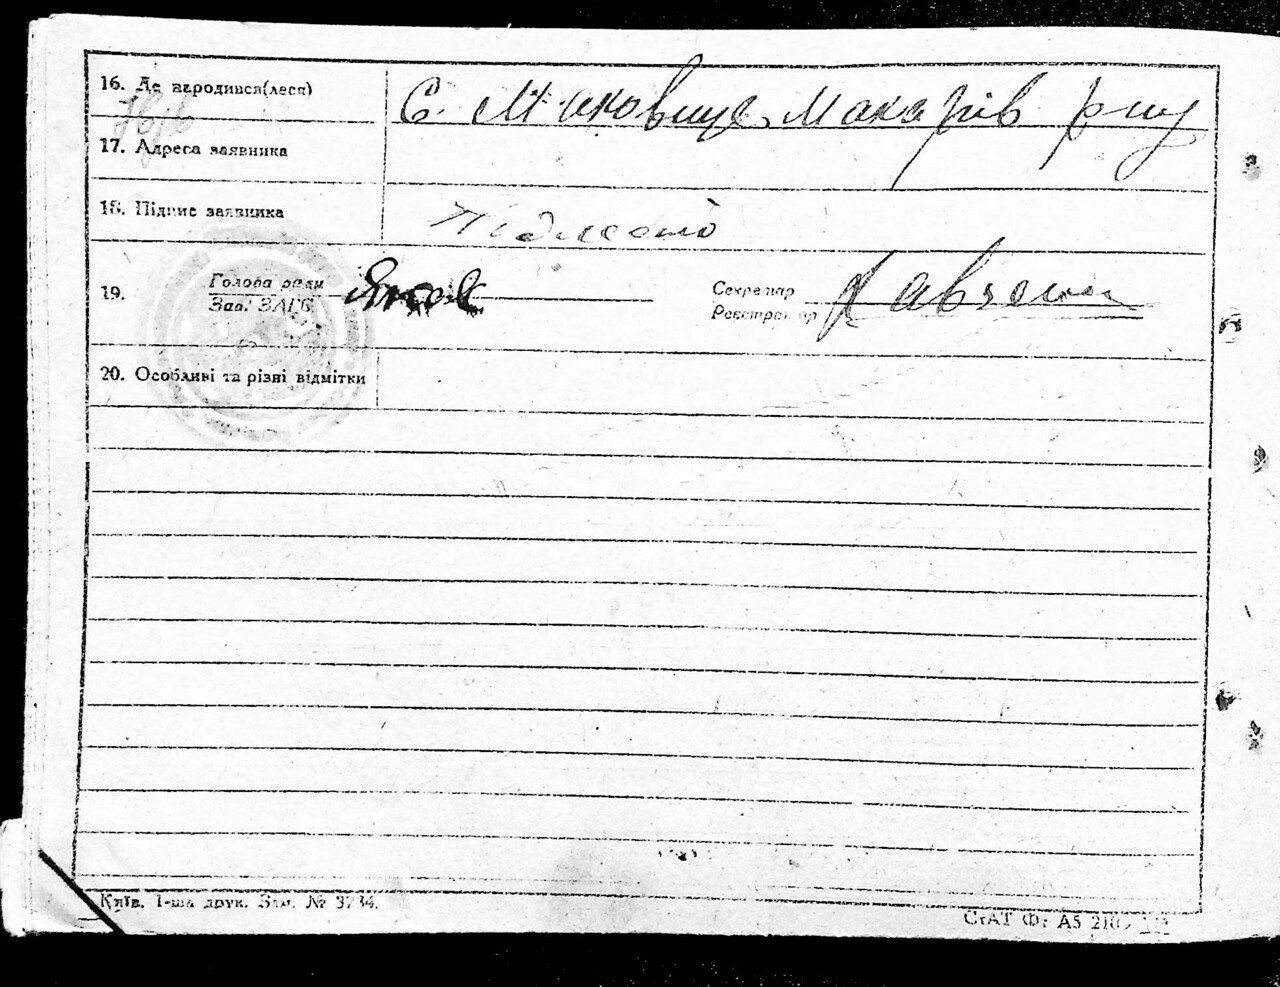 16. Де народився(лася) С. Маковище Макарів р-ну
17. Адреса заявника
18. Підпис заявника Підписано
19. Голова ради
Зав. ЗАГС
Секретар
Реєстратор
20. Особливі та різні відмітки
Київ. 1-ша друк. Зам. № 3234.
СтАТ Фт А5 210